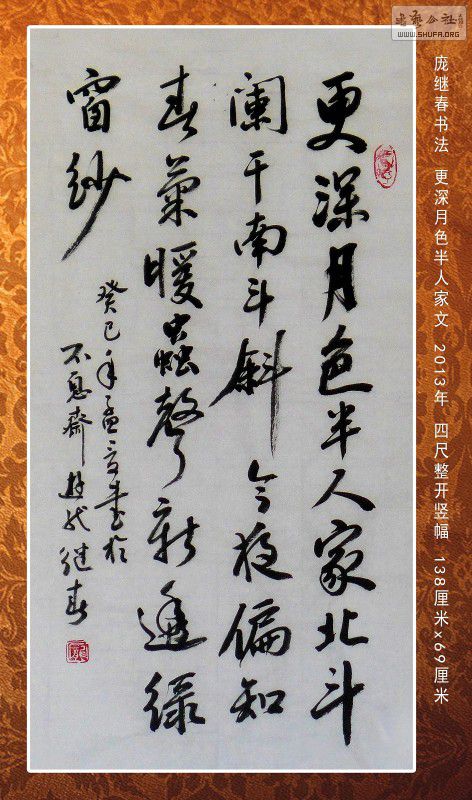 書藝公社
WWW.SHUFA.ORG
庞继春书法 更深月色半人家文 2013年 四尺整开竖幅 138厘米×69厘米
更深月色半人家北斗
闌干南斗斜今夜偏知
春氣暖蟲聲新透綠
窗紗
癸巳年孟夏書於
不息齋 继春